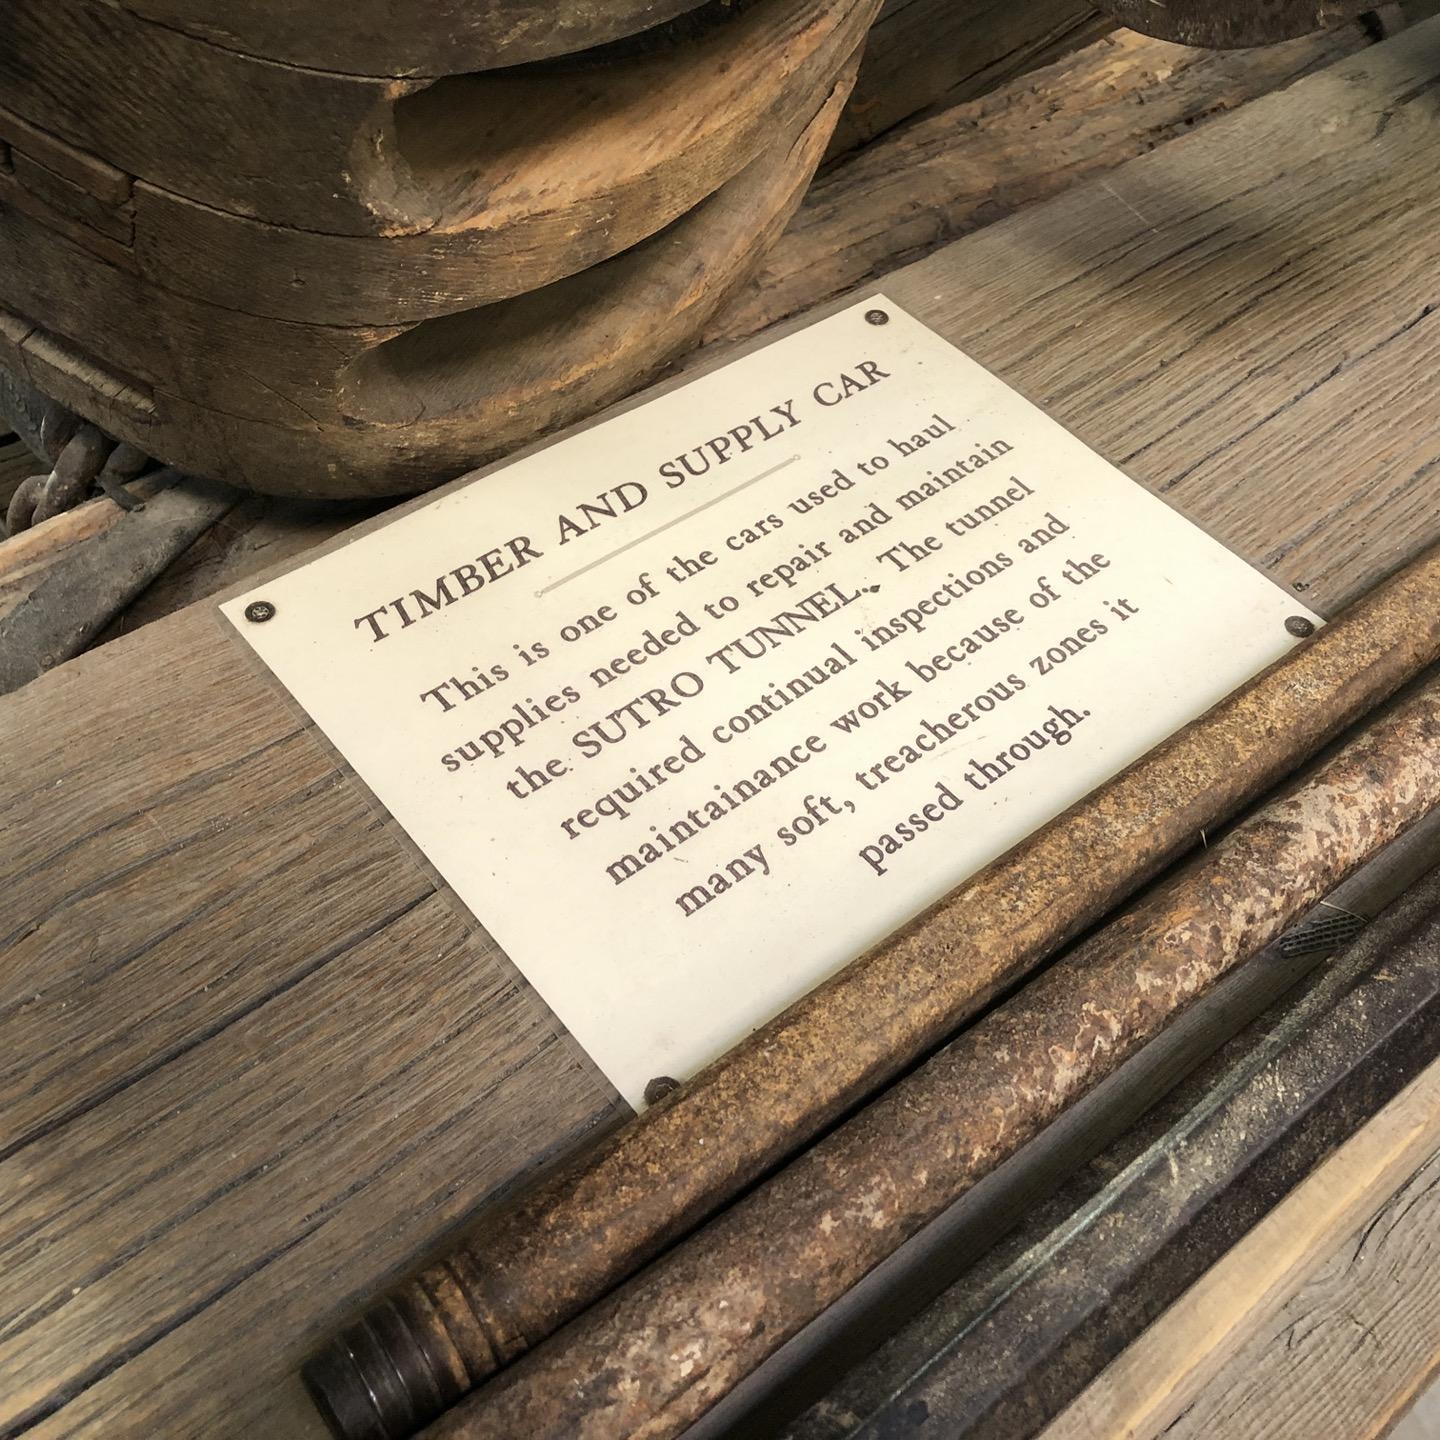 TIMBER AND SUPPLY CAR
This is one of the cars used to haul
supplies needed to repair and maintain
the SUTRO TUNNEL. The tunnel
required continual inspections and
maintainance work because of the
many soft, treacherous zones it
passed through.